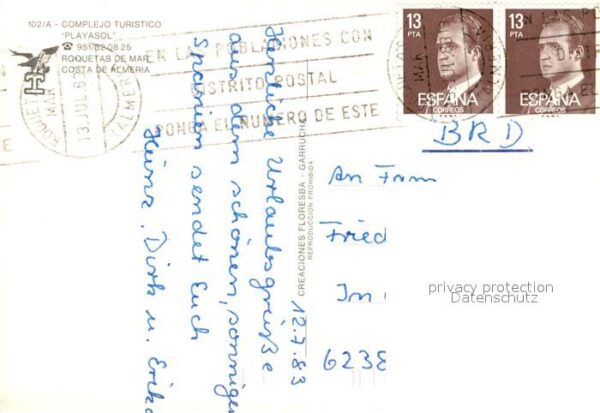 102/A - COMPLEJO TURISTICO
"PLAYASOL"
☎ 951/32 08 25
ROQUETAS DE MAR
COSTA DE ALMERIA
ROQUETAS
MAR
13 JUL 8
(ALMERIA)
EN LAS POBLACIONES CON
DISTRITO POSTAL
PONGA EL NUMERO DE ESTE
13
PTA
ESPAÑA
CORREOS
13
PTA
ESPAÑA
CORREOS
BRD
12.7.83
Herzliche Urlaubsgrüße
aus dem schönen, sonnigen
Spanien sendet Euch
Heinz, Dirk u. Erika
CREACIONES FLORESBA - GARRUCHA
REPRODUCCION PROHIBIDA
An Fam
Fried
Im
6238
privacy protection
Datenschutz